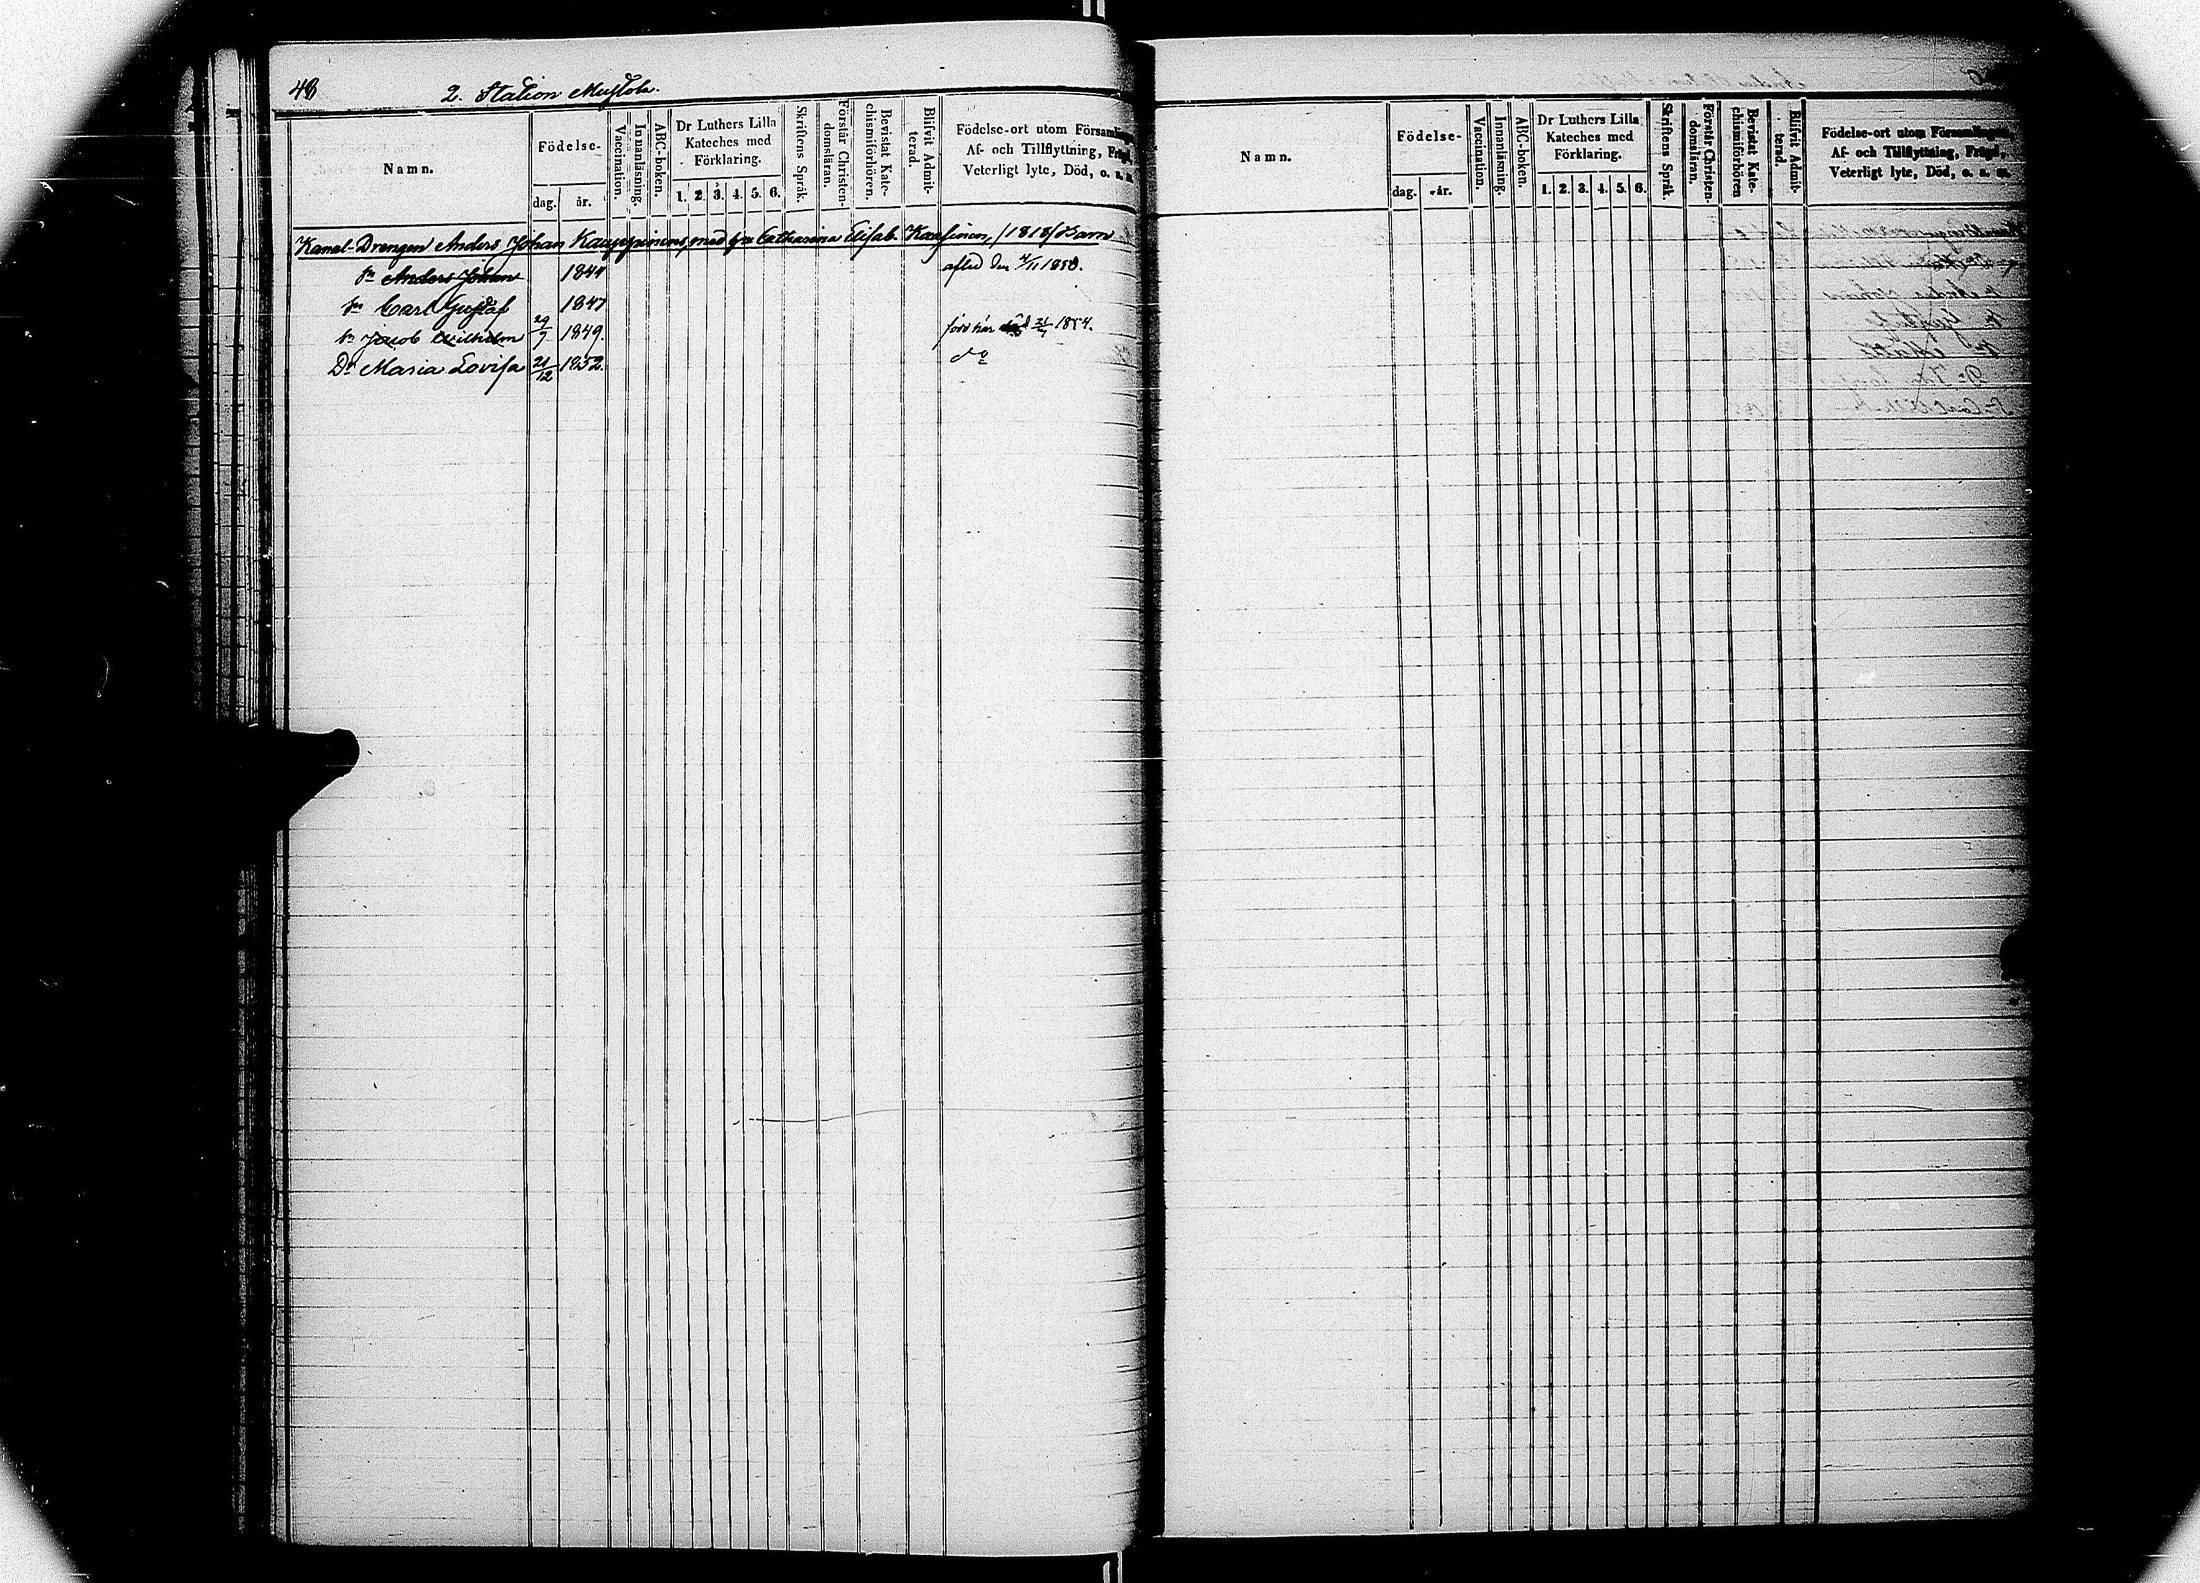 48
2. Station Mustola.
Namn.
Födelse-
dag. år.
Vaccination.
Innanläsning.
ABC-boken.
Dr Luthers Lilla
Kateches med
Förklaring.
1. 2. 3. 4. 5. 6.
Skriftens Språk.
Förstår Christen-
domsläran.
Bevistat Kate-
chismiförhören.
Blifvit Admit-
terad.
Födelse-ort utom Församling
Af- och Tillflyttning,
Veterligt lyte, Död, o. s.
Kanal-Drengen Anders Johan Kauppinens, med Catharina Elisab. (1818) Barn
Sn Anders Johan 1841 afled den 1858.
Sn Carl Gustaf 1847
Sn Jacob Wilhelm 29/7 1849. född här död 1854.
Dr Maria Lovisa 21/12 1852. do
Namn.
Födelse-
dag. år.
Vaccination.
Innanläsning.
ABC-boken.
Dr Luthers Lilla
Kateches med
Förklaring.
1. 2. 3. 4. 5. 6.
Skriftens Språk.
Förstår Christen-
domsläran.
Bevistat Kate-
chismiförhören
Blifvit Admit-
terad.
Födelse-ort utom Församlingen,
Af- och Tillflyttning, Frägd,
Veterligt lyte, Död, o. s. m.